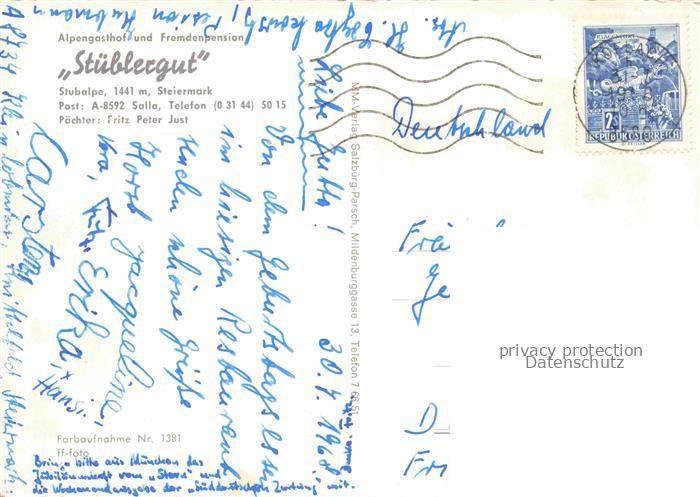 Alpengasthof und Fremdenpension
„Stüblergut"
Stubalpe, 1441 m, Steiermark
Post: A-8592 Salla, Telefon (0 31 44) 50 15
Pächter: Fritz Peter Just
Farbaufnahme Nr. 1381
ff-foto
MM-Verlag Salzburg-Parsch, Mildenburggasse 13, Telefon 7 66 51
30.7.1968
Liebe Jutta!
Von dem Geburtstagsessen
im hiesigen Restaurant
senden schöne Grüße
Horst Jacqueline
Vera, Fritz, Erika, Hansi
Carsten
A 8734
Bring bitte aus München das
Jubiläumsheft vom „Stern" und
die Wochenendausgabe der „Süddeutschen Zeitung" mit.
Deutschland
Frä
Ge
D
Fr
KLAGENFURT
2S
REPUBLIK ÖSTERREICH
privacy protection
Datenschutz